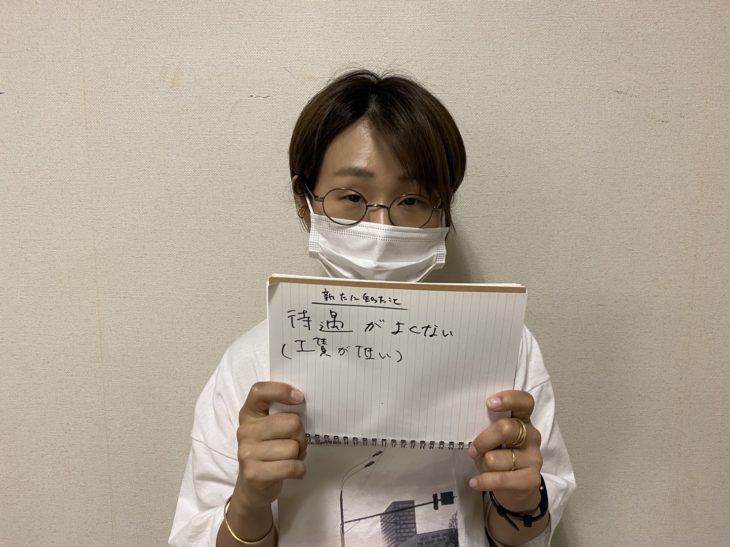 新たに知ったこと
待遇がよくない
(工賃が低い)